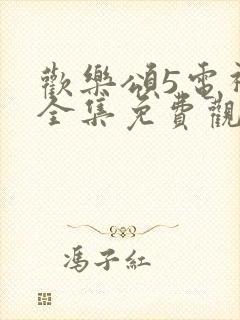 歡樂頌5電視
全集免費觀
馮子紅